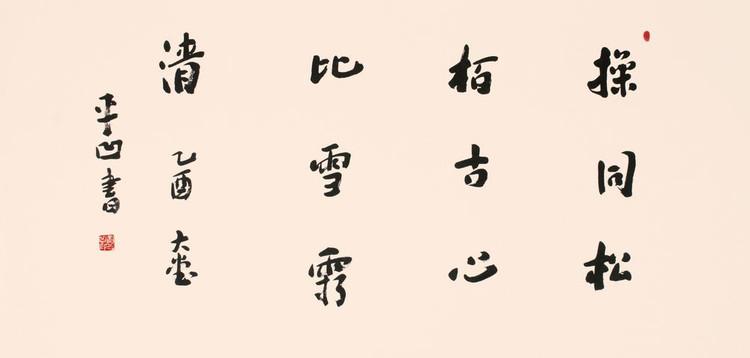 操同松
栢古心
比雪霜
清 乙酉 大堂
平凹書